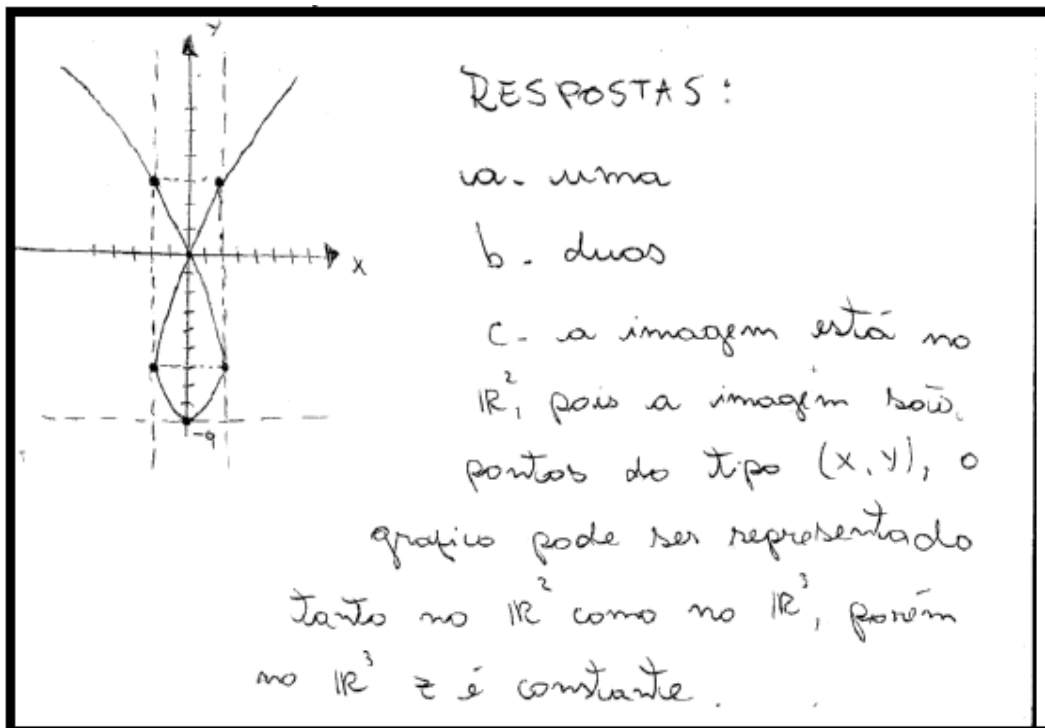 Y
X
-9
RESPOSTAS:
a- uma
b- duas
c- a imagem está no
IR², pois a imagem são
pontos do tipo (X, Y), o
grafico pode ser representado
tanto no IR² como no IR³, porém
no IR³ z é constante.